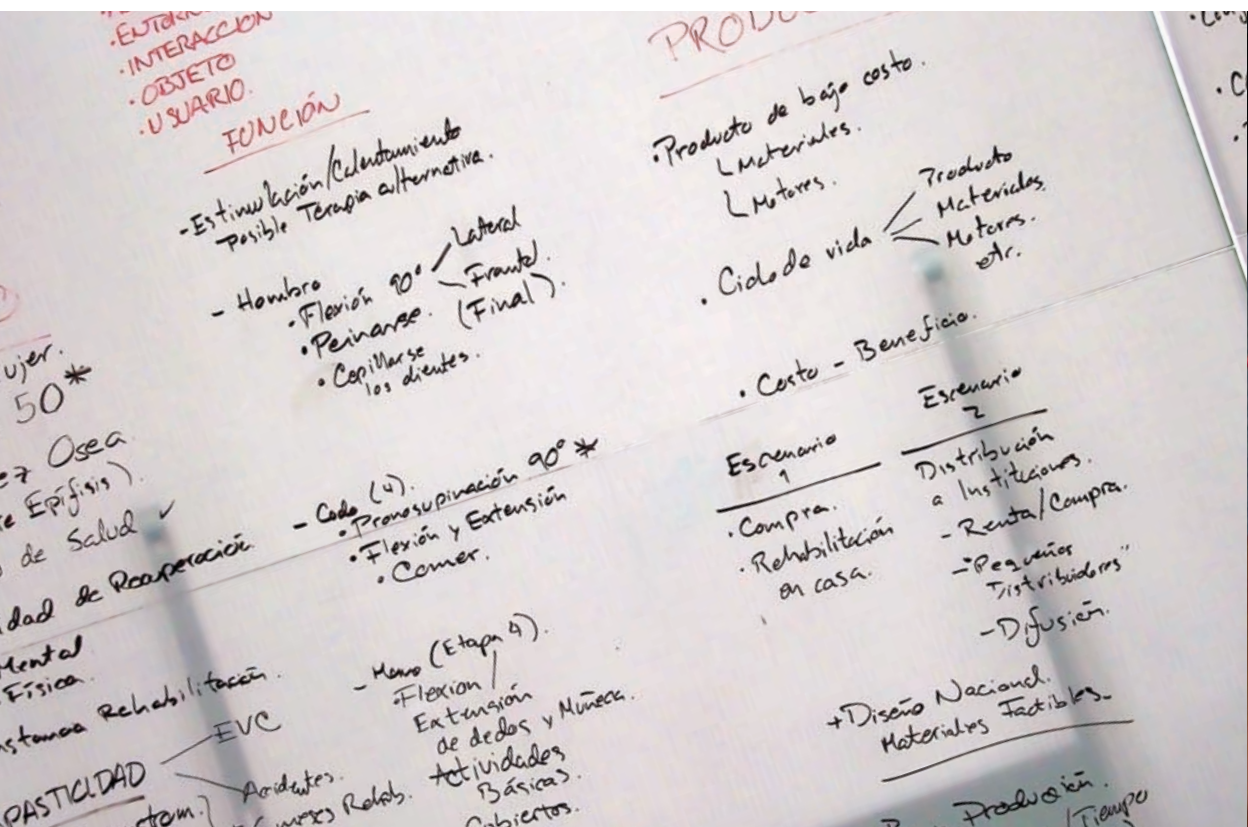 INTERACCIÓN
· OBJETO
· USUARIO.
FUNCIÓN
- Estimulación/Calentamiento
Posible Terapia alternativa.
- Hombro
· Flexión 90°
Lateral
Frontal.
(Final).
· Peinarse.
· Cepillarse
los dientes.
- Codo (4).
· Pronosupinación 90° *
· Flexión y Extensión
· Comer.
- Mano (Etapa 4).
· Flexion /
Extensión
de dedos y Muñeca.
Actividades
Básicas.
Cubiertos.
50*
Osea
Epífisis).
de Salud ✓
de Recuperación.
Mental
Física.
Rehabilitación.
EVC
Accidentes.
Rehab.
· Producto de bajo costo.
Materiales.
Motores.
· Ciclo de vida
Producto
Materiales
Motores.
etc.
· Costo - Beneficio.
Escenario
1
· Compra.
· Rehabilitación
en casa.
Escenario
2
Distribución
a Instituciones.
- Renta/Compra.
- "Pequeños
Distribuidores"
- Difusión.
+ Diseño Nacional.
Materiales Factibles.
Producción.
/Tiempo